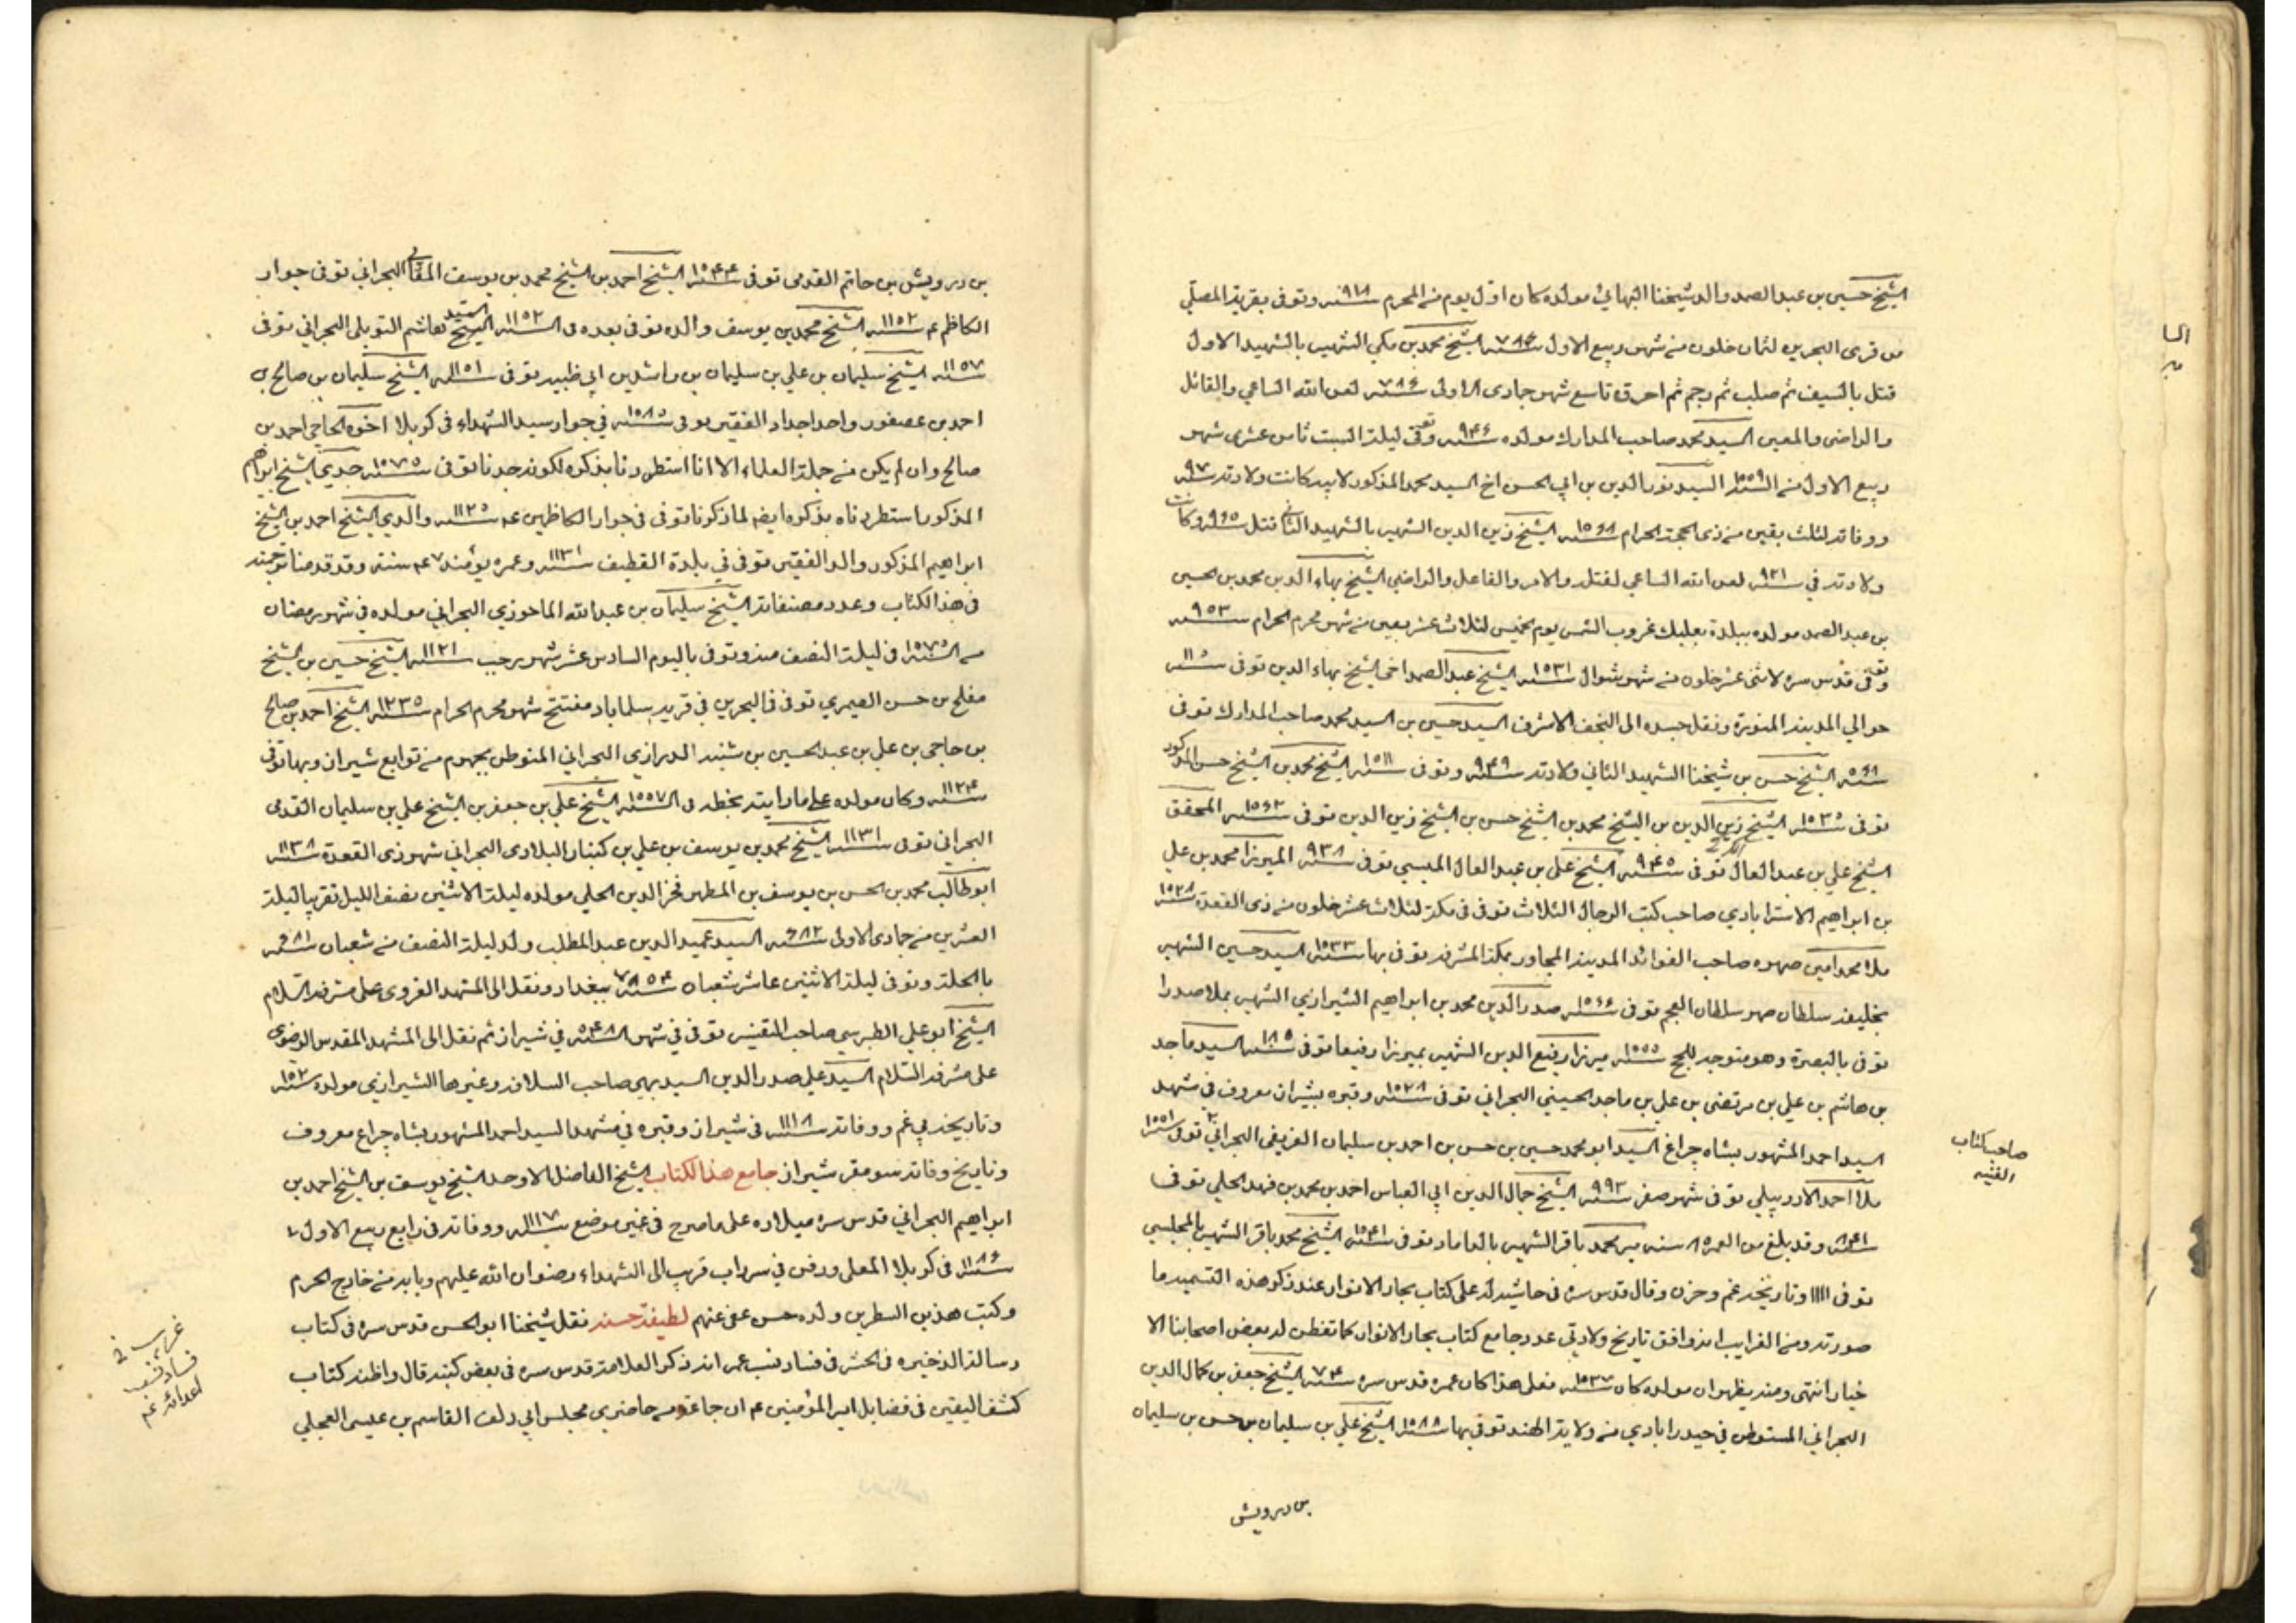 الشيخ حسين بن عبد الصمد والد شيخنا البهائي مولده كان اول يوم من المحرم سنه ٩١٨ وتوفى بقرية المصلى
من قرى البحرين لثمان خلون من شهر ربيع الاول سنه ٩٨٤ الشيخ محمد بن مكي الشهير بالشهيد الاول
قتل بالسيف ثم صلب ثم رجم ثم احرق تاسع شهر جمادى الاولى سنه ٧٨٦ لعن الله الساعي والقاتل
والراضى والمعين السيد محمد صاحب المدارك مولده سنه ٩٤٦ وتوفى ليلة السبت ثامن عشرى شهر
ربيع الاول من السنه ١٠٠٩ السيد نور الدين بن ابي الحسن اخ السيد محمد المذكور لابيه كانت ولادته سنه ٩٧٠
ووفاته لثلث بقين من ذى الحجة الحرام سنه ١٠٦٨ الشيخ زين الدين الشهير بالشهيد الثاني قتل سنه ٩٦٥ وكانت
ولادته في سنه ٩٢١ لعن الله الساعي لقتله والامر والفاعل والراضي الشيخ بهاء الدين محمد بن الحسين
بن عبد الصمد مولده ببلدة بعلبك غروب الشمس يوم الخميس لثلاث عشر بقين من شهر محرم الحرام سنه ٩٥٣
وتوفى قدس سره لاثنى عشر خلون من شهر شوال سنه ١٠٣١ الشيخ عبد الصمد اخى الشيخ بهاء الدين توفى سنه
حوالي المدينة المنورة ونقل جسده الى النجف الاشرف السيد حسين بن السيد محمد صاحب المدارك توفى
سنه ١٠٦٨ الشيخ حسن بن شيخنا الشهيد الثاني ولادته سنه ٩٤٩ وتوفى سنه ١٠١١ الشيخ محمد بن الشيخ حسن المذكور
توفى سنه ١٠٣٥ الشيخ زين الدين بن الشيخ محمد بن الشيخ حسن بن الشيخ زين الدين توفى سنه ١٠٦٢ المحقق
الشيخ علي بن عبد العال الكركي توفى سنه ٩٤٥ الشيخ علي بن عبد العال الميسي توفى سنه ٩٣٨ الميرزا محمد بن علي
بن ابراهيم الاسترابادي صاحب كتب الرجال الثلاث توفى في مكة لثلاث عشر خلون من ذى القعدة سنه ١٠٢٨
ملا محمد امين صهره صاحب الفوائد المدينة المجاور بمكة المشرفة توفى بها سنه ١٠٣٣ السيد حسين الشهير
بخليفة سلطان صهر سلطان العجم توفى سنه ١٠٦٦ صدر الدين محمد بن ابراهيم الشيرازي الشهير بملا صدرا
توفى بالبصرة وهو متوجه للحج سنه ١٠٥٠ ميرزا رفيع الدين الشهير بميرزا رفيعا توفى سنه ١٠٨٠ السيد ماجد
بن هاشم بن علي بن مرتضى بن علي بن ماجد الحسيني البحراني توفى سنه ١٠٢٨ وقبره بشيراز معروف في مشهد
السيد احمد المشهور بشاه چراغ السيد ابو محمد حسين بن حسن بن احمد بن سليمان الغريفى البحراني توفى سنه ١٠٠١
صاحب كتاب
الغنيه
ملا احمد الاردبيلي توفى شهر صفر سنه ٩٩٣ الشيخ جمال الدين ابي العباس احمد بن محمد بن فهد الحلي توفى
سنه ٨٤١ وقد بلغ من العمر ٨٥ سنه مير محمد باقر الشهير بالداماد توفى سنه ١٠٤١ الشيخ محمد باقر الشهير بالمجلسي
توفى ١١١١ وتاريخه غم وحزن وقال قدس سره في حاشية له على كتاب بحار الانوار عند ذكر هذه التسمية ما
صورته ومن الغرايب انه وافق تاريخ ولادتي عدد جامع كتاب بحار الانوار كما تفطن له بعض اصحابنا الا
خيار انتهى ومنه يظهر ان مولده كان سنه ١٠٣٧ فعلى هذا كان عمره قدس سره سنه ٧٤ الشيخ جعفر بن كمال الدين
البحراني المستوطن في حيدرابادي من ولاية الهند توفي بها سنه ١٠٨٨ الشيخ علي بن سليمان بن حسن بن سليمان
بن درويش
بن درويش بن حاتم القدمى توفى سنه ١٠٦٤ الشيخ احمد بن الشيخ محمد بن يوسف المقابي البحراني توفى جوار
الكاظم ع سنه ١١٠٢ الشيخ محمد بن يوسف والده توفى بعده فى السنه ١١٠٢ السيد هاشم التوبلي البحراني توفى
سنه ١١٠٧ الشيخ سليمان بن علي بن سليمان بن راشد بن ابي ظبيه توفى سنه ١١٠١ الشيخ سليمان بن صالح بن
احمد بن عصفور واحد اجداد الفقير توفى سنه ١٠٨٥ في جوار سيد الشهداء في كربلا اخوه الحاجي احمد بن
صالح وان لم يكن من جملة العلماء الا انا استطردنا بذكره لكونه جدنا توفى سنه ١٠٧٥ جدي الشيخ ابراهيم
المذكور استطردناه بذكره ايضا لما ذكرنا توفى في جوار الكاظمين ع سنه ١١٢٥ والدي الشيخ احمد بن الشيخ
ابراهيم المذكور والد الفقير توفى في بلدة القطيف سنه ١١٣١ وعمره يومئذ ٤٧ سنة وقد قدمنا ترجمته
في هذا الكتاب وعدد مصنفاته الشيخ سليمان بن عبد الله الماحوزي البحراني مولده في شهر رمضان
من السنه ١٠٧٥ في ليلة النصف منه وتوفى باليوم السادس عشر شهر رجب سنه ١١٢١ الشيخ حسين بن الشيخ
مفلح بن حسن الصيمري توفى في البحرين في قرية سلماباد مفتتح شهر محرم الحرام سنه الشيخ احمد بن صالح
بن حاجي بن علي بن عبد الحسين بن شنبه الدرازي البحراني المتوطن بجهرم من توابع شيراز وبها توفى
سنه ١١٢٤ وكان مولده على ما رايته بخطه في السنه ١٠٥٧ الشيخ علي بن جعفر بن الشيخ علي بن سليمان القدمى
البحراني توفى سنه ١١٣١ الشيخ محمد بن يوسف بن علي بن كنبار البلادى البحراني شهر ذى القعدة سنه
ابو طالب محمد بن الحسن بن يوسف بن المطهر فخر الدين الحلي مولده ليلة الاثنين نصف الليل تقريبا ليلة
العشرين من جمادى الاولى سنه السيد عميد الدين عبد المطلب ولد ليلة النصف من شعبان سنه
بالحلة وتوفى ليلة الاثنين عاشر شعبان سنه ببغداد ونقل الى المشهد الغروى على مشرفه السلام
الشيخ ابو علي الطبرسي صاحب التفسير توفى في شهر السنه ٥٤٨ في شيراز ثم نقل الى المشهد المقدس الرضوى
على مشرفه السلام السيد علي صدر الدين السيد بهي صاحب السلافة وغيرها الشيرازي مولده سنه
وتاريخه في غم ووفاته سنه ١١١٨ فى شيراز وقبره في مشهد السيد احمد المشهور بشاه چراغ معروف
وتاريخ وفاته سو مقر شيراز جامع هذا الكتاب الشيخ الفاضل الاوحد الشيخ يوسف بن الشيخ احمد بن
ابراهيم البحراني قدس سره ميلاده على ما صرح في غير موضع سنه ١١٠٧ ووفاته في رابع ربيع الاول
سنه ١١٨٦ في كربلا المعلى ودفن في سرداب قريب الى الشهداء رضوان الله عليهم وبابه من خارج الحرم
وكتب هذين السطرين ولده حسن عفى عنهم لطيفة حسنه نقل شيخنا ابو الحسن قدس سره فى كتاب
رسالة الذخيره في الحشر في فساد نسب عمر انه ذكر العلامة قدس سره فى بعض كتبه قال واظنه كتاب
غريب في
فساد نسب
اعدائهم
كشف اليقين فى فضايل امير المؤمنين ع ان جماعة من حاضرى مجلس ابي دلف القاسم بن عيسى العجلي